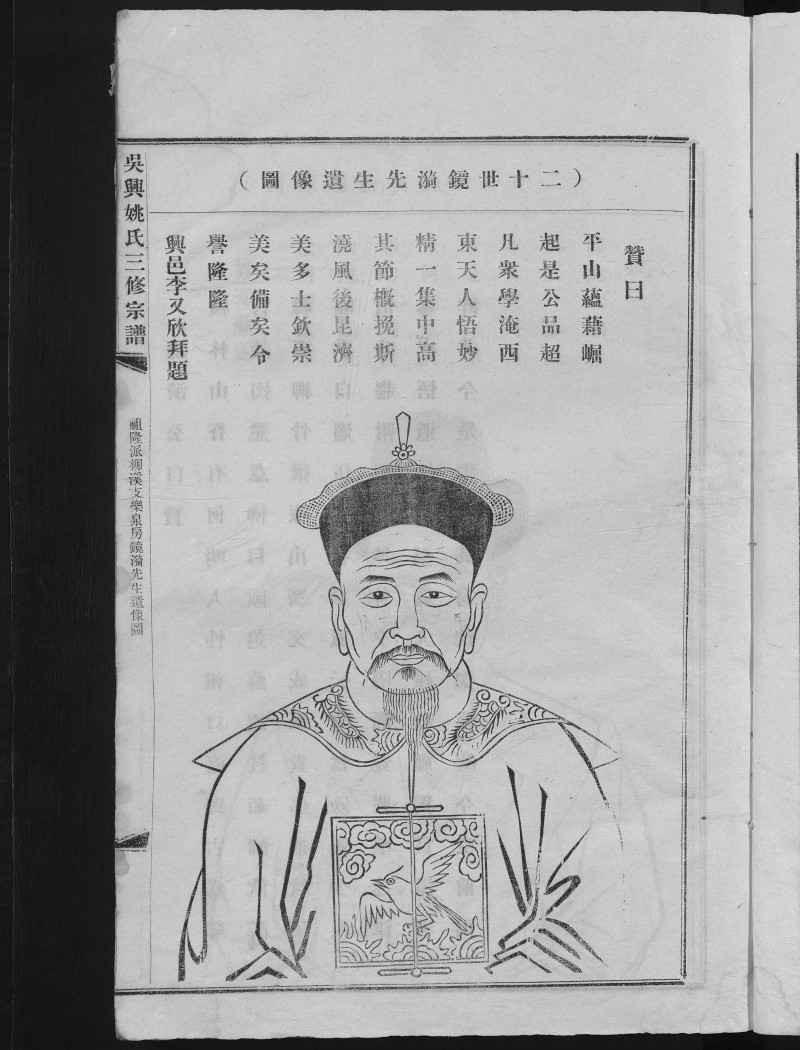 （二十世鏡漪先生遺像圖）
贊曰
平山蘊藉崛
起是公品超
凡衆學淹西
東天人悟妙
精一集中高
其節概挽斯
澆風後昆濟
美多士欽崇
美矣備矣令
譽隆隆
興邑李又欣拜題
吳興姚氏三修宗譜
祖隆派柳溪支樂泉房鏡漪先生遺像圖